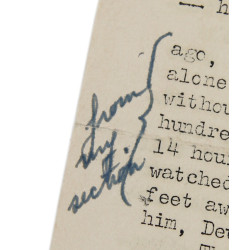 — h
ago,
alone
withou
hundre
14 hour
watched
feet aw
him, Dev
from
my
section